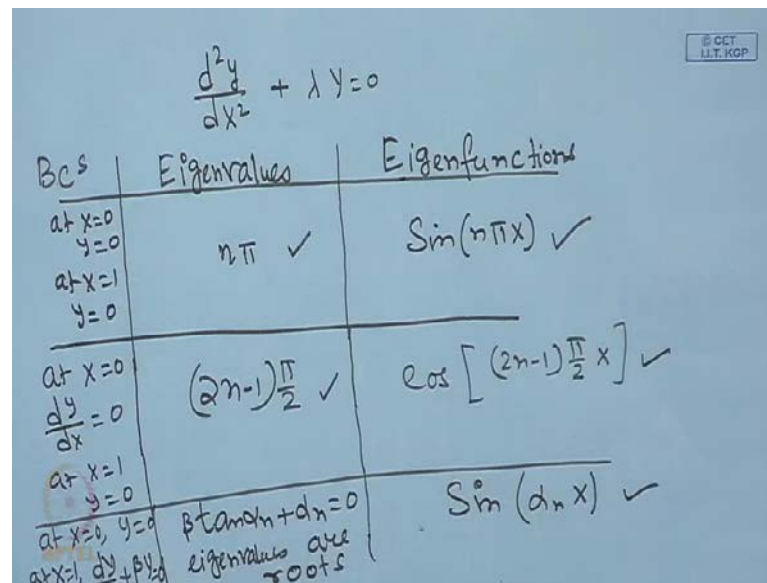 © CET
I.I.T. KGP
d²y/dx² + λ y = 0
BCs | Eigenvalues | Eigenfunctions
at x=0
y=0
at x=1
y=0
nπ ✓
Sin(nπx) ✓
at x=0
dy/dx = 0
at x=1
y=0
(2n-1)π/2 ✓
Cos [(2n-1)π/2 x] ✓
at x=0, y=0
at x=1, dy/dx + βy=0
β tan αn + αn = 0
eigenvalues are
roots
Sin (αn x) ✓